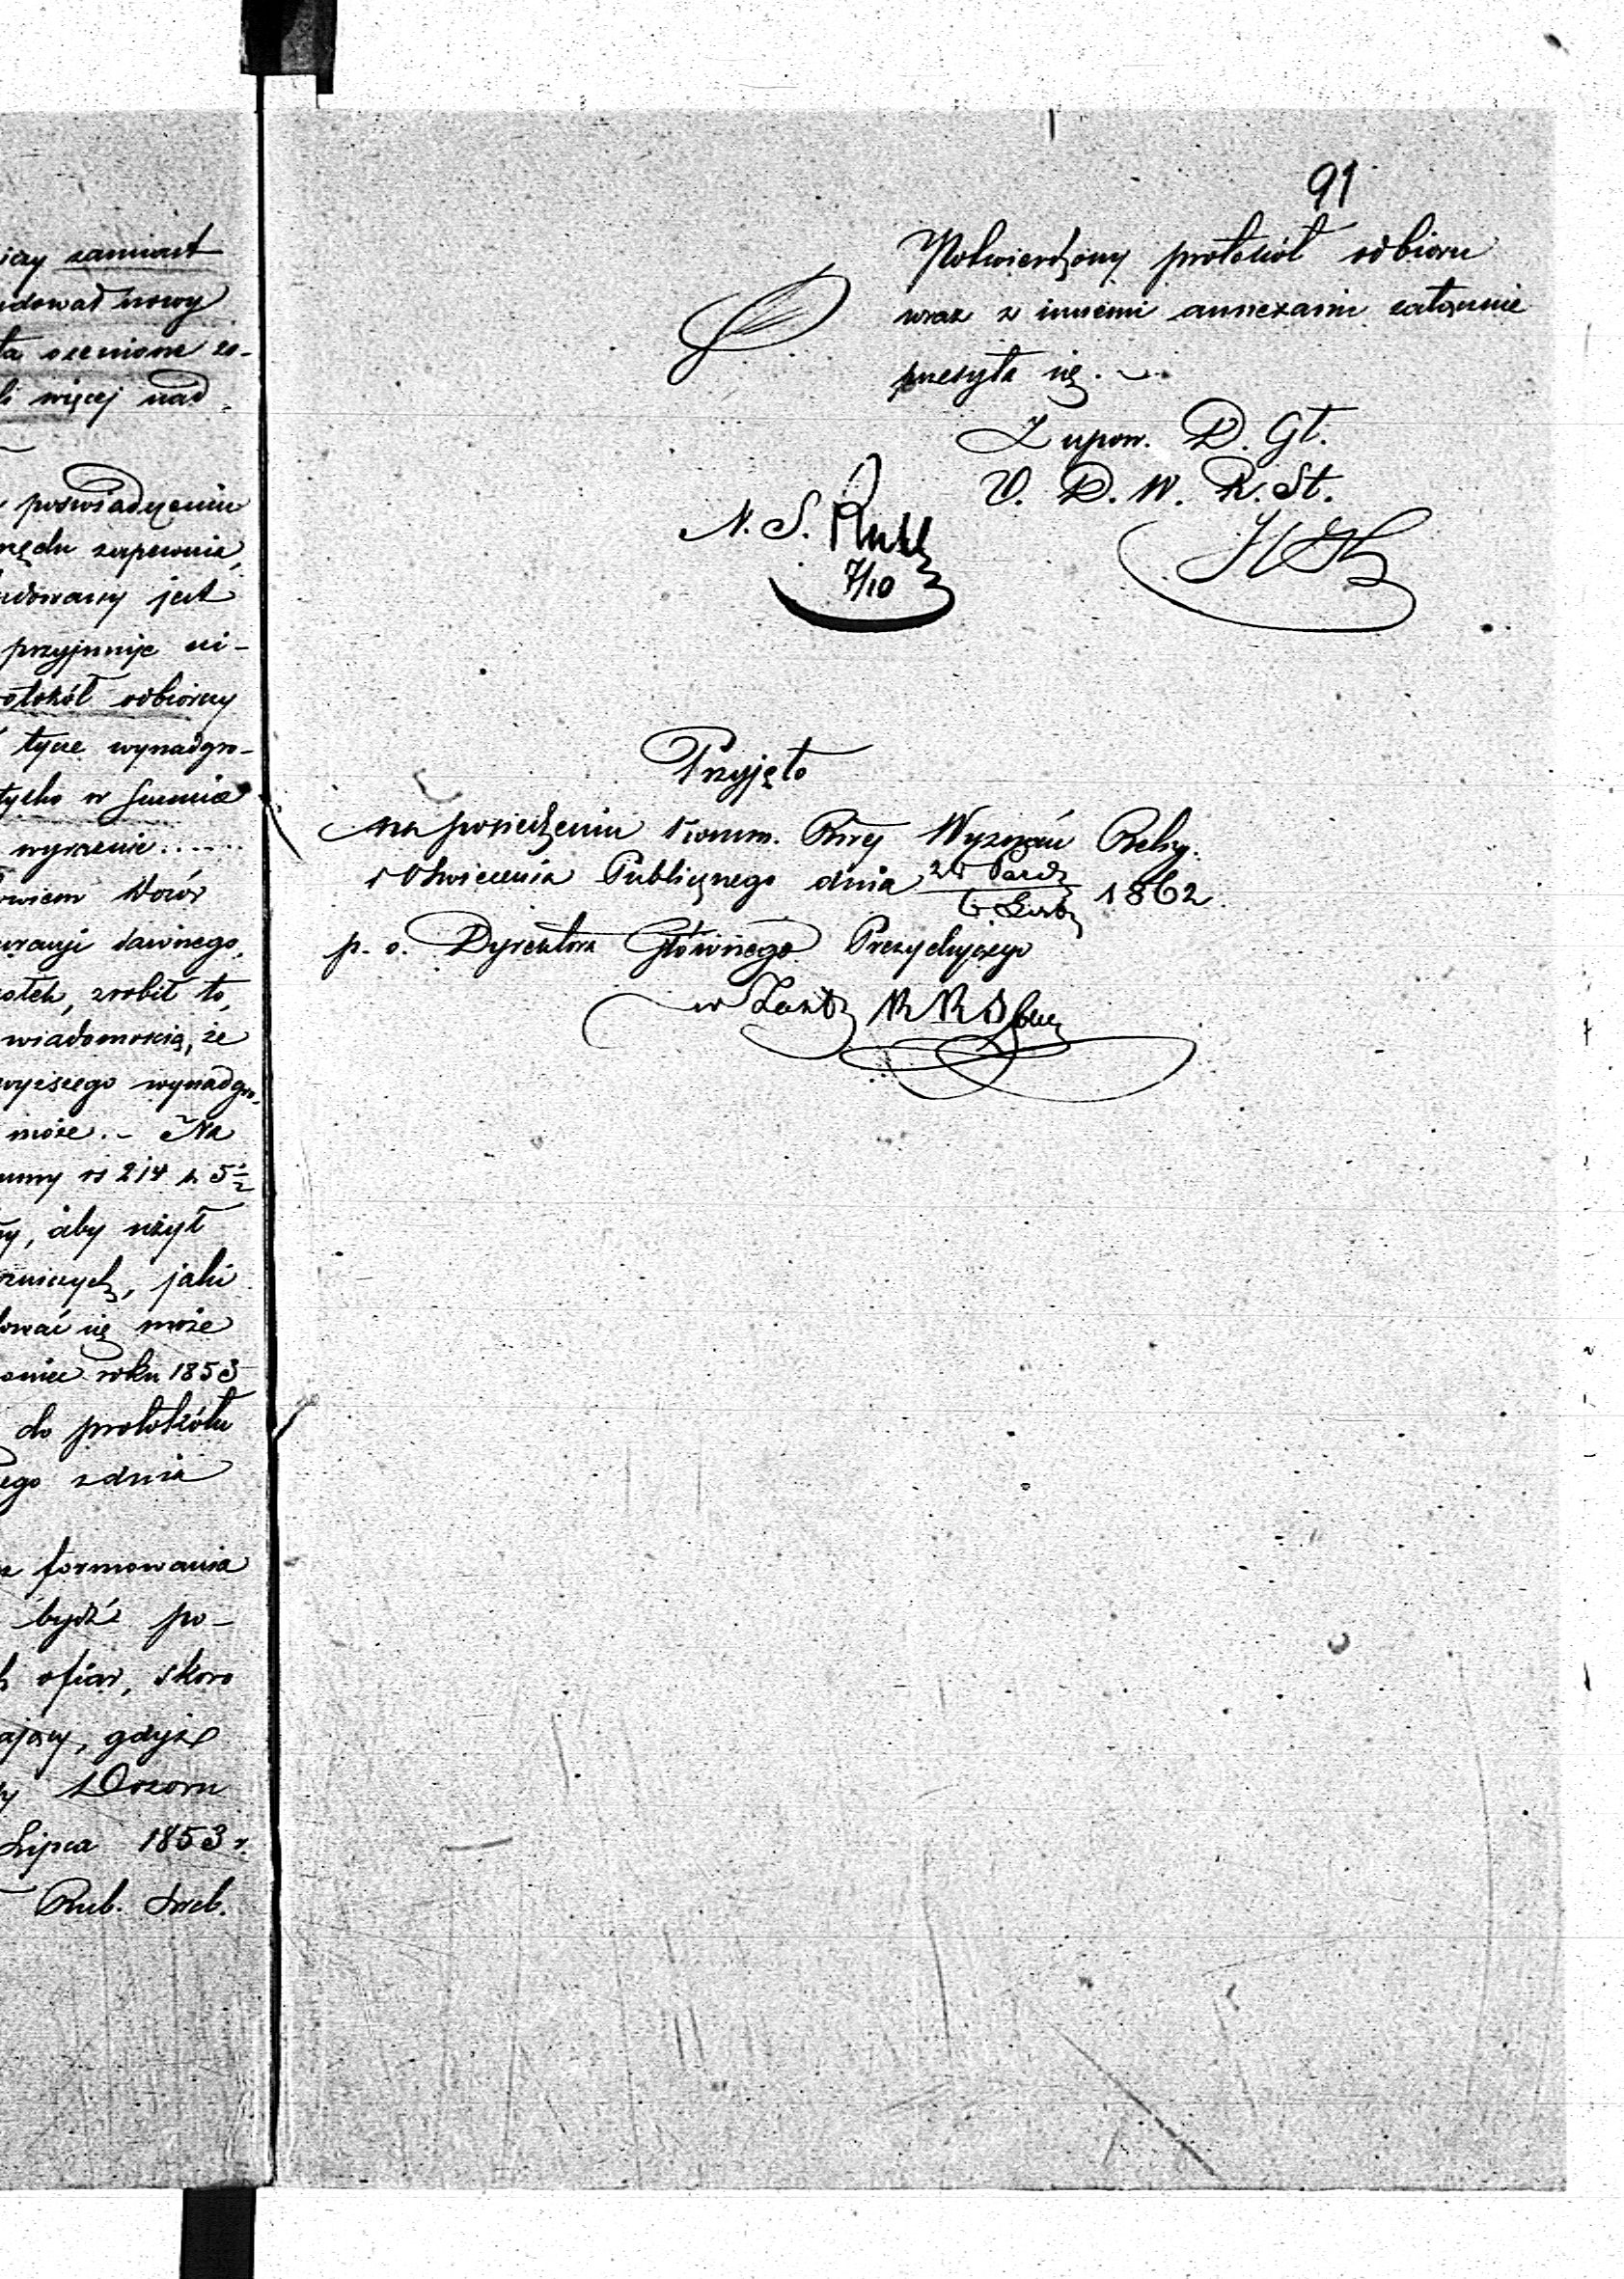 iczy zamiast
udował nowy
ta ocenione zo-
li więcej nad
poświadczeniu
rzędu zapewnia,
udowany jest
przyjmuje ci-
otokół odbiorczy
tycze wynadgro-
tylko w Summie
wyrzenie......
owiem Dozór
uracji dawnego,
ołek, zrobił to,
wiadomością, że
wyższego wynadgro-
może.- Na
umy rs 214 k 5½
ny, aby użył
czniczych, jaki
ować się może
oniec roku 1853
do protokółu
ego z dnia
ze formowania
bydź po-
h ofiar, skoro
ający, gdyż
y Dozoru
Lipca 1853 r.
Rub. Sreb.
91
Potwierdzony protokół odbioru
wraz z innemi annexami załącznie
przesyła się.
Z upow. D. Gł.
V. D. W. R. St.
N. S.
7/10
Przyjęto
na posiedzeniu Komm. Rząd. Wyznań Relig.
i Oświecenia Publicznego dnia 25 Paźdz 1862.
p. o. Dyrektora Głównego Prezydującego
w Zast.